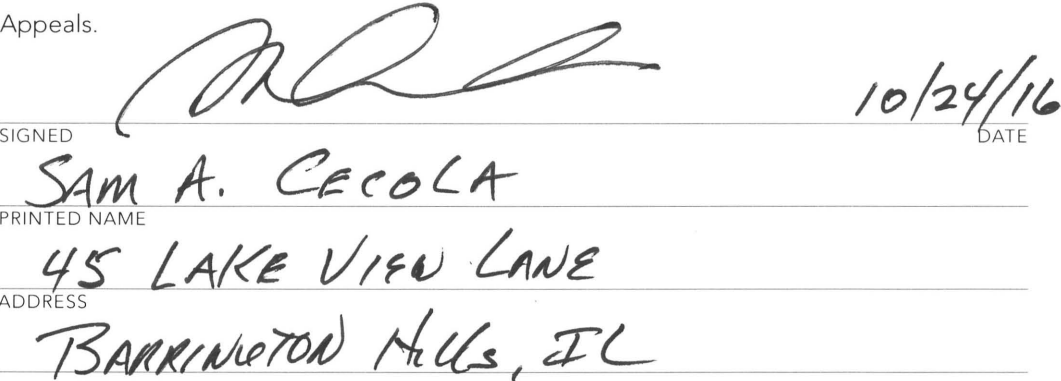 Appeals.
10/24/16
SIGNED DATE
SAM A. CECOLA
PRINTED NAME
45 LAKE VIEW LANE
ADDRESS
BARRINGTON Hills, IL